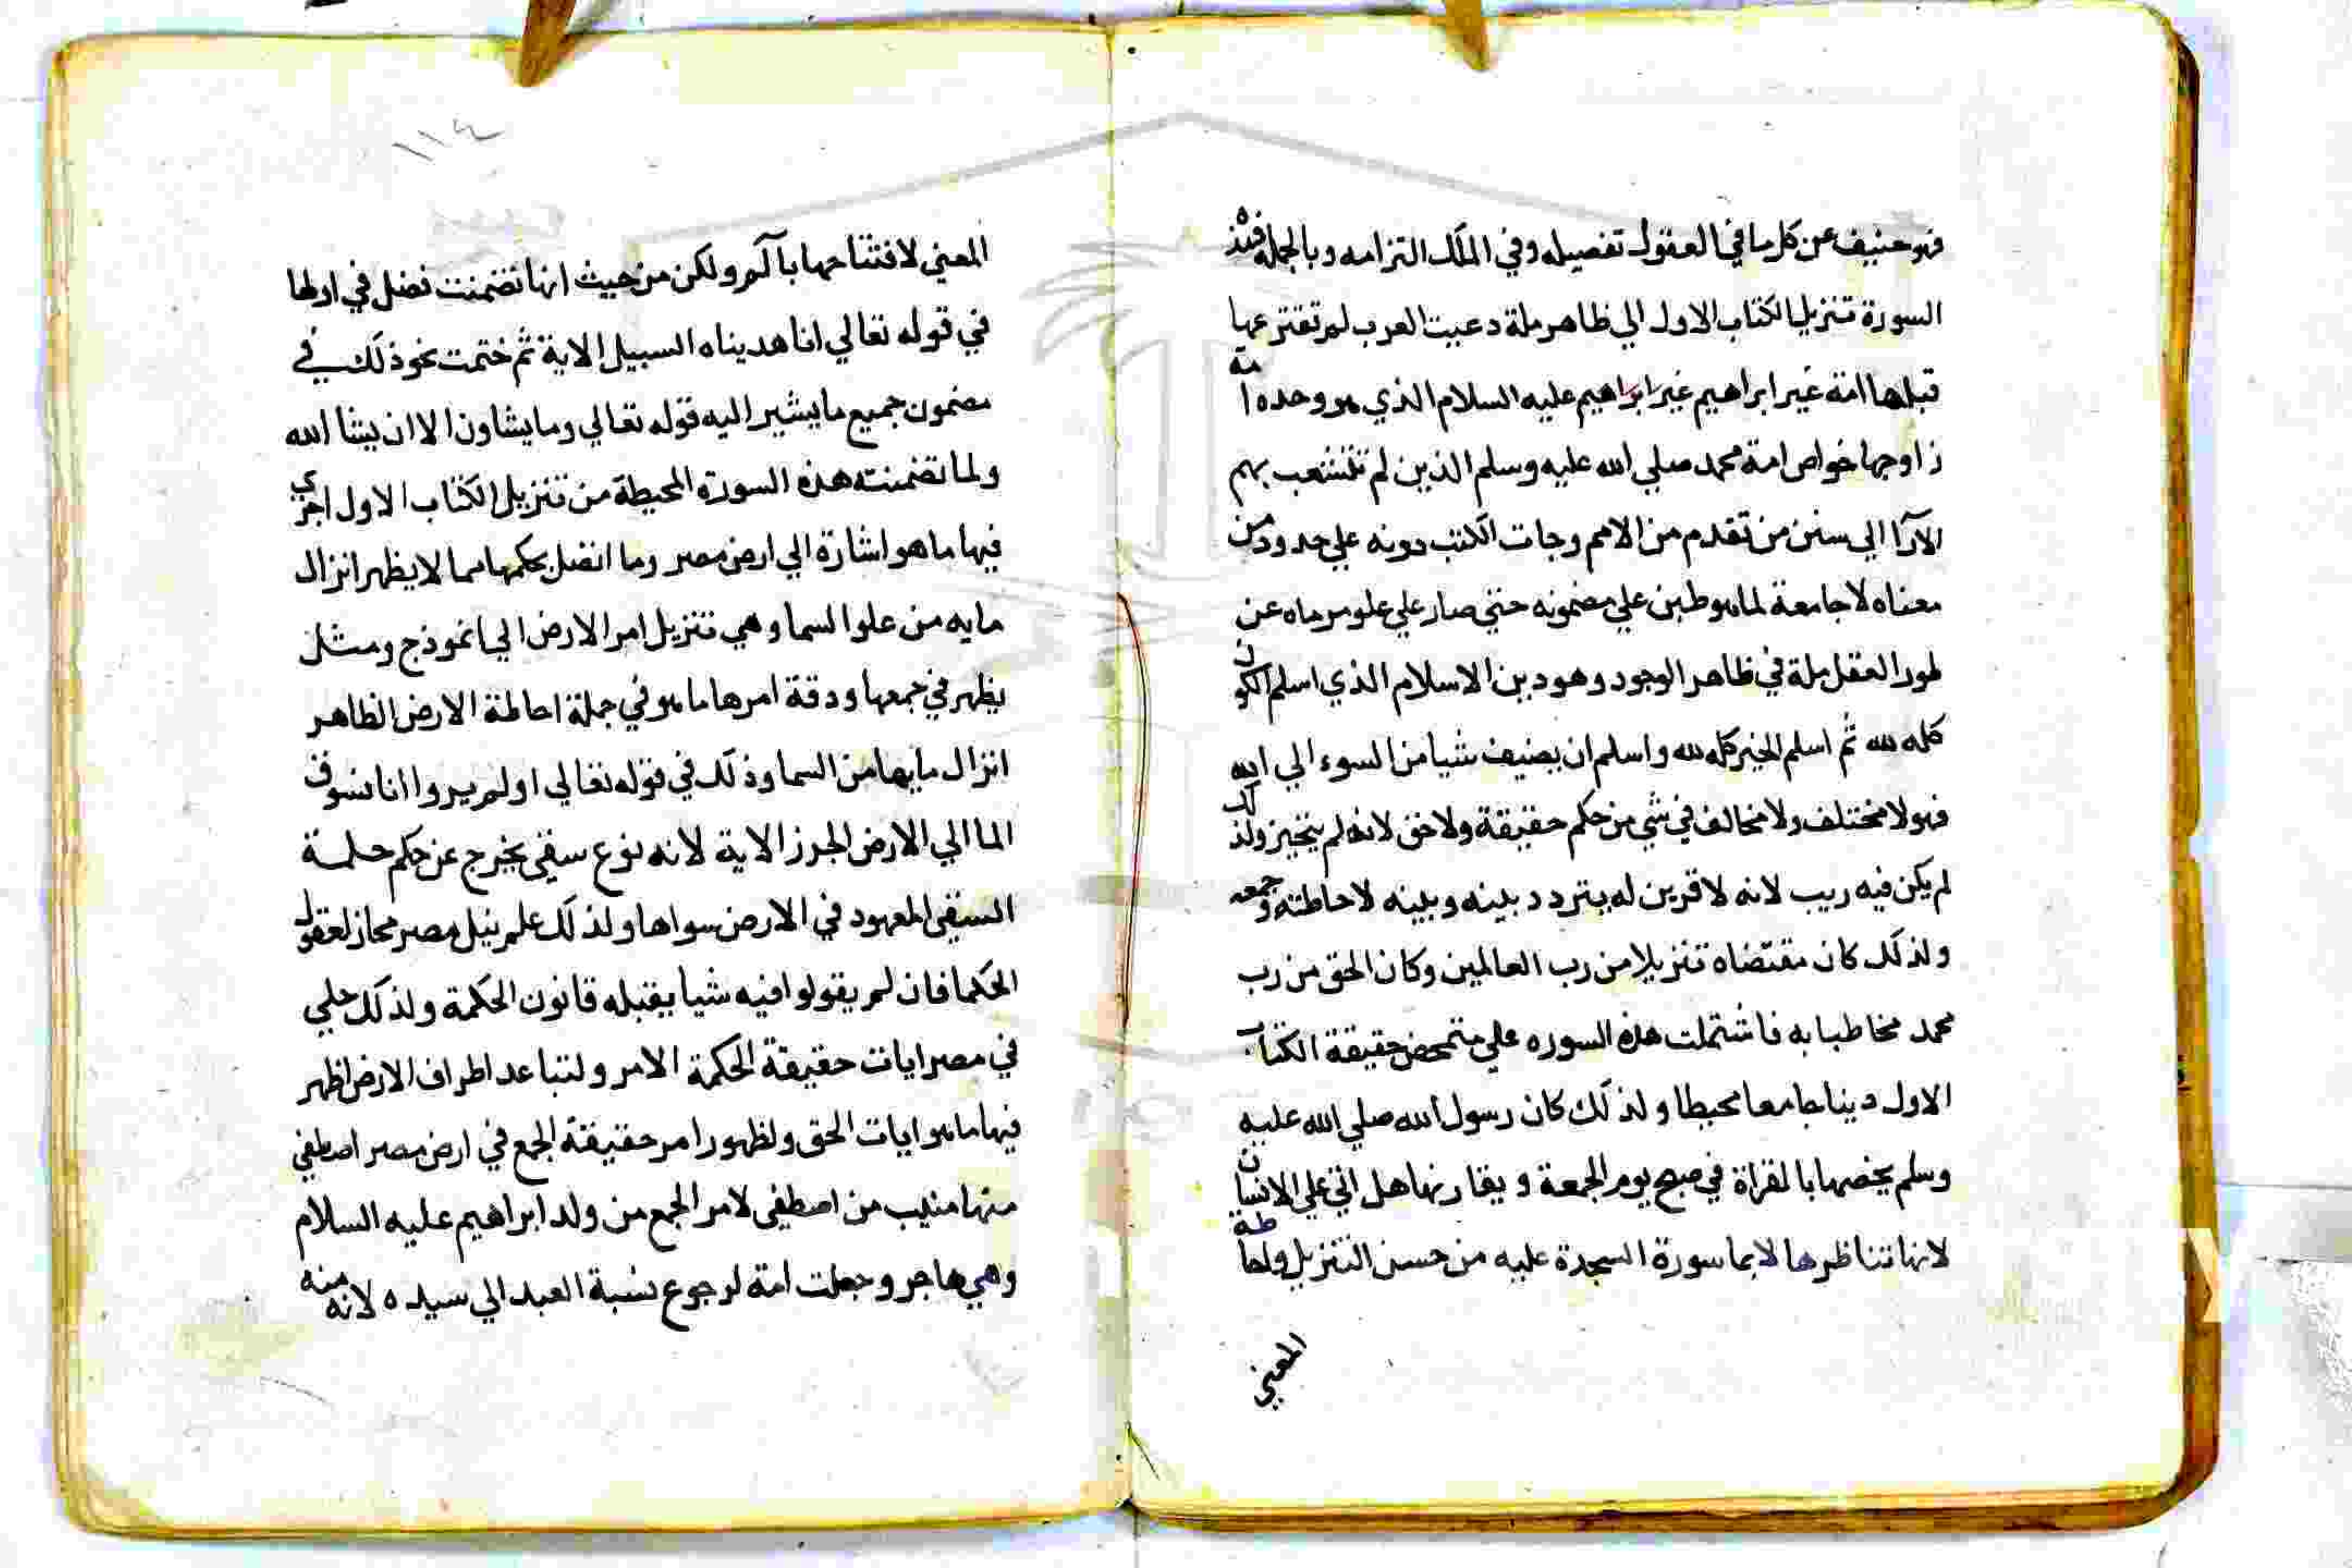 فهو حنيف عن كل ما في العقول تفصيله وفي الملك التزامه وبالجملة فهذه
السورة تنزيل الكتاب الاول الي ظاهر ملة دعيت العرب لم تقتر عنها
قبلها امة غير ابراهيم غير ابراهيم عليه السلام الذي هو وحده امة
زاوجها خواص امة محمد صلي الله عليه وسلم الذين لم تتشعب بهم
الآرا الي سنن من تقدم من الامم وجات الكتب دونه علي حدود من
معناه لا جامعة لما هو طبن علي مضمونه حتي صار علي علو مرماه عن
طور العقل ملة في ظاهر الوجود وهو دين الاسلام الذي اسلم الكون
كله لله ثم اسلم الخير كله لله واسلم ان يضيف شيا من السوء الي ابه
فهو لا مختلف ولا مخالف في شي من حكم حقيقة ولا حق لانه لم يتحيز ولذلك
لم يكن فيه ريب لانه لا قرين له يتردد بينه وبينه لاحاطته وجمعه
ولذلك كان مقتضاه تنزيلا من رب العالمين وكان الحق من رب
محمد مخاطبا به فاشتملت هذه السوره علي متمحض حقيقة الكتاب
الاول دينا جامعا محيطا ولذلك كان رسول الله صلي الله عليه
وسلم يخصها بالقراة في صبح يوم الجمعة ويقارنها هل اتي علي الانسان
لانها تناظرها لا بما سورة السجدة عليه من حسن التنزيل واحاطة
المعني
١١٤
المعني لافتتاحها بآلم ولكن من حيث انها تضمنت فضل في اولها
في قوله تعالي انا هديناه السبيل الاية ثم ختمت نحو ذلك في
مضمون جميع ما يشير اليه قوله تعالي وما يشاون الا ان يشا الله
ولما تضمنته هذه السورة المحيطة من تنزيل الكتاب الاول اجري
فيها ما هو اشارة الي ارض مصر وما اتصل بحكمها مما لا يظهر انزال
مايه من علو السما وهي تنزيل امر الارض الي انموذج ومثل
يظهر في جمعها ودقة امرها ما هو في جملة احاطة الارض الظاهر
انزال مايها من السما وذلك في قوله تعالي اولم يروا انا نسوق
الما الي الارض الجرز الاية لانه نوع سقي يخرج عن حكم حكمة
السقي المعهود في الارض سواها ولذلك علم نيل مصر محاز لعقول
الحكما فان لم يقولوا فيه شيا يقبله قانون الحكمة ولذلك حلي
في مصر ايات حقيقة الحكمة الامر ولتباعد اطراف الارض اظهر
فيها ما هو ايات الحق ولظهور امر حقيقة الجمع في ارض مصر اصطفي
منها منيب من اصطفي لامر الجمع من ولد ابراهيم عليه السلام
وهي هاجر وجعلت امة لرجوع نسبة العبد الي سيده لانه منه